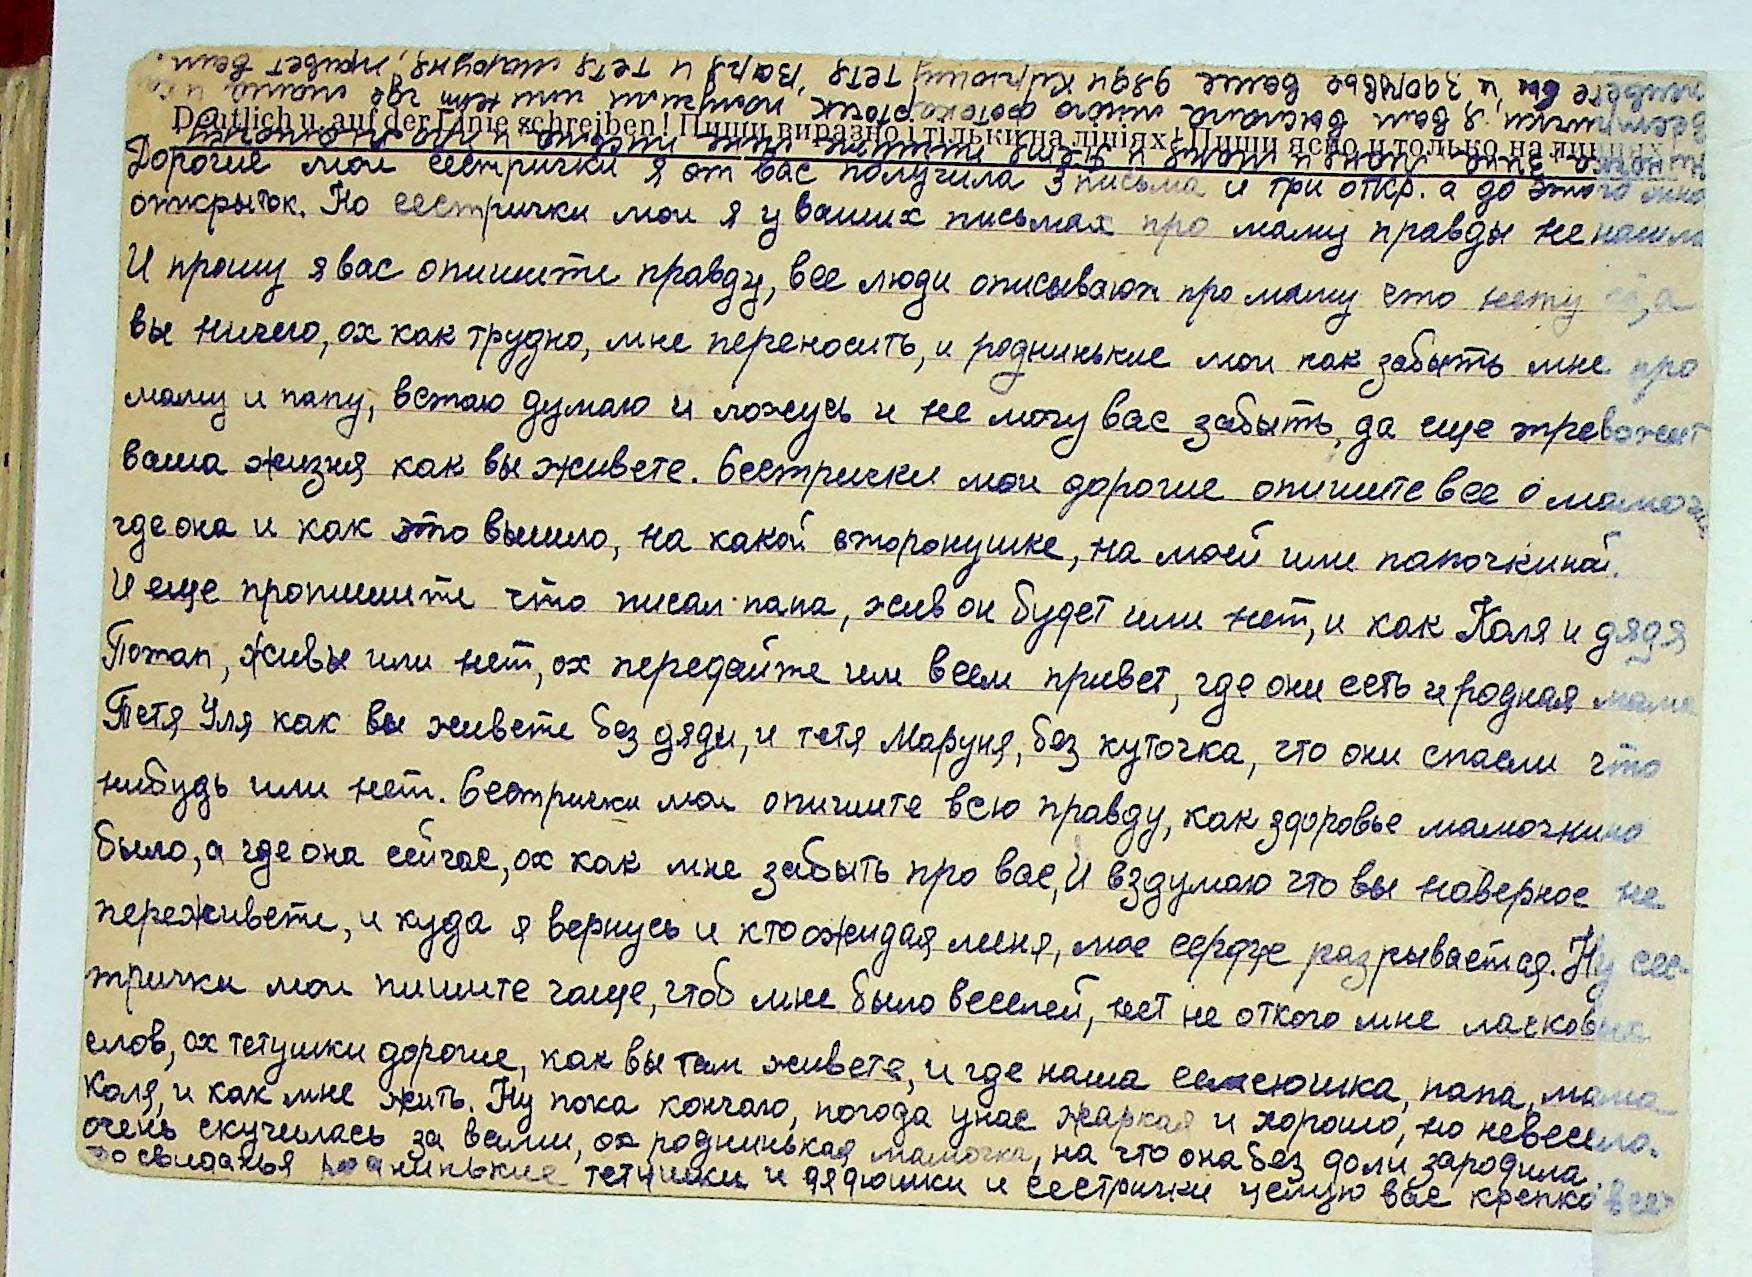 живете вы, и здоровье ваше дядя Кирюша, тетя Варя и тетя Маруня, привет вам.
сестрички я вам выслала много фотокарточек получили или нет
Deutlich u. auf der Linie schreiben! Пиши виразно і тільки на лініях! Пиши ясно и только на линиях!
Дорогие мои сестрички я от вас получила 3 письма и три откр. а до этого много
открыток. Но сестрички мои я у ваших письмах про маму правды не нашла
И прошу я вас опишите правду, все люди описывают про маму что нету её, а
вы ничего, ох как трудно, мне переносить, и роднинькие мои как забыть мне про
маму и папу, встаю думаю и ложусь и не могу вас забыть, да еще тревожит
ваша жизня как вы живете. Сестрички мои дорогие опишите все о мамочке
где она и как это вышло, на какой сторонушке, на моей или папочкиной.
И еще пропишите что писал папа, жив он будет или нет, и как Коля и дядя
Потап, живы или нет, ох передайте им всем привет, где они есть и родная мама
Тетя Уля как вы живете без дяди, и тетя Маруня, без куточка, что они спасли что
нибудь или нет. Сестрички мои опишите всю правду, как здоровье мамочкино
было, а где она сейчас, ох как мне забыть про вас, И вздумаю что вы наверное не
переживете, и куда я вернусь и кто ожидая меня, мое сердце разрывается. Ну сес-
трички мои пишите чаще, чтоб мне было веселей, нет не откого мне ласковых
слов, ох тетушки дорогие, как вы там живете, и где наша семеюшка, папа, мама
Коля, и как мне жить. Ну пока кончаю, погода у нас жаркая и хорошо, но невесело.
очень скучилась за вами, ох роднинькая мамочка, на что она без доли зародила.
до свиданья роднинькие тетушки и дядюшки и сестрички целую вас крепко всех